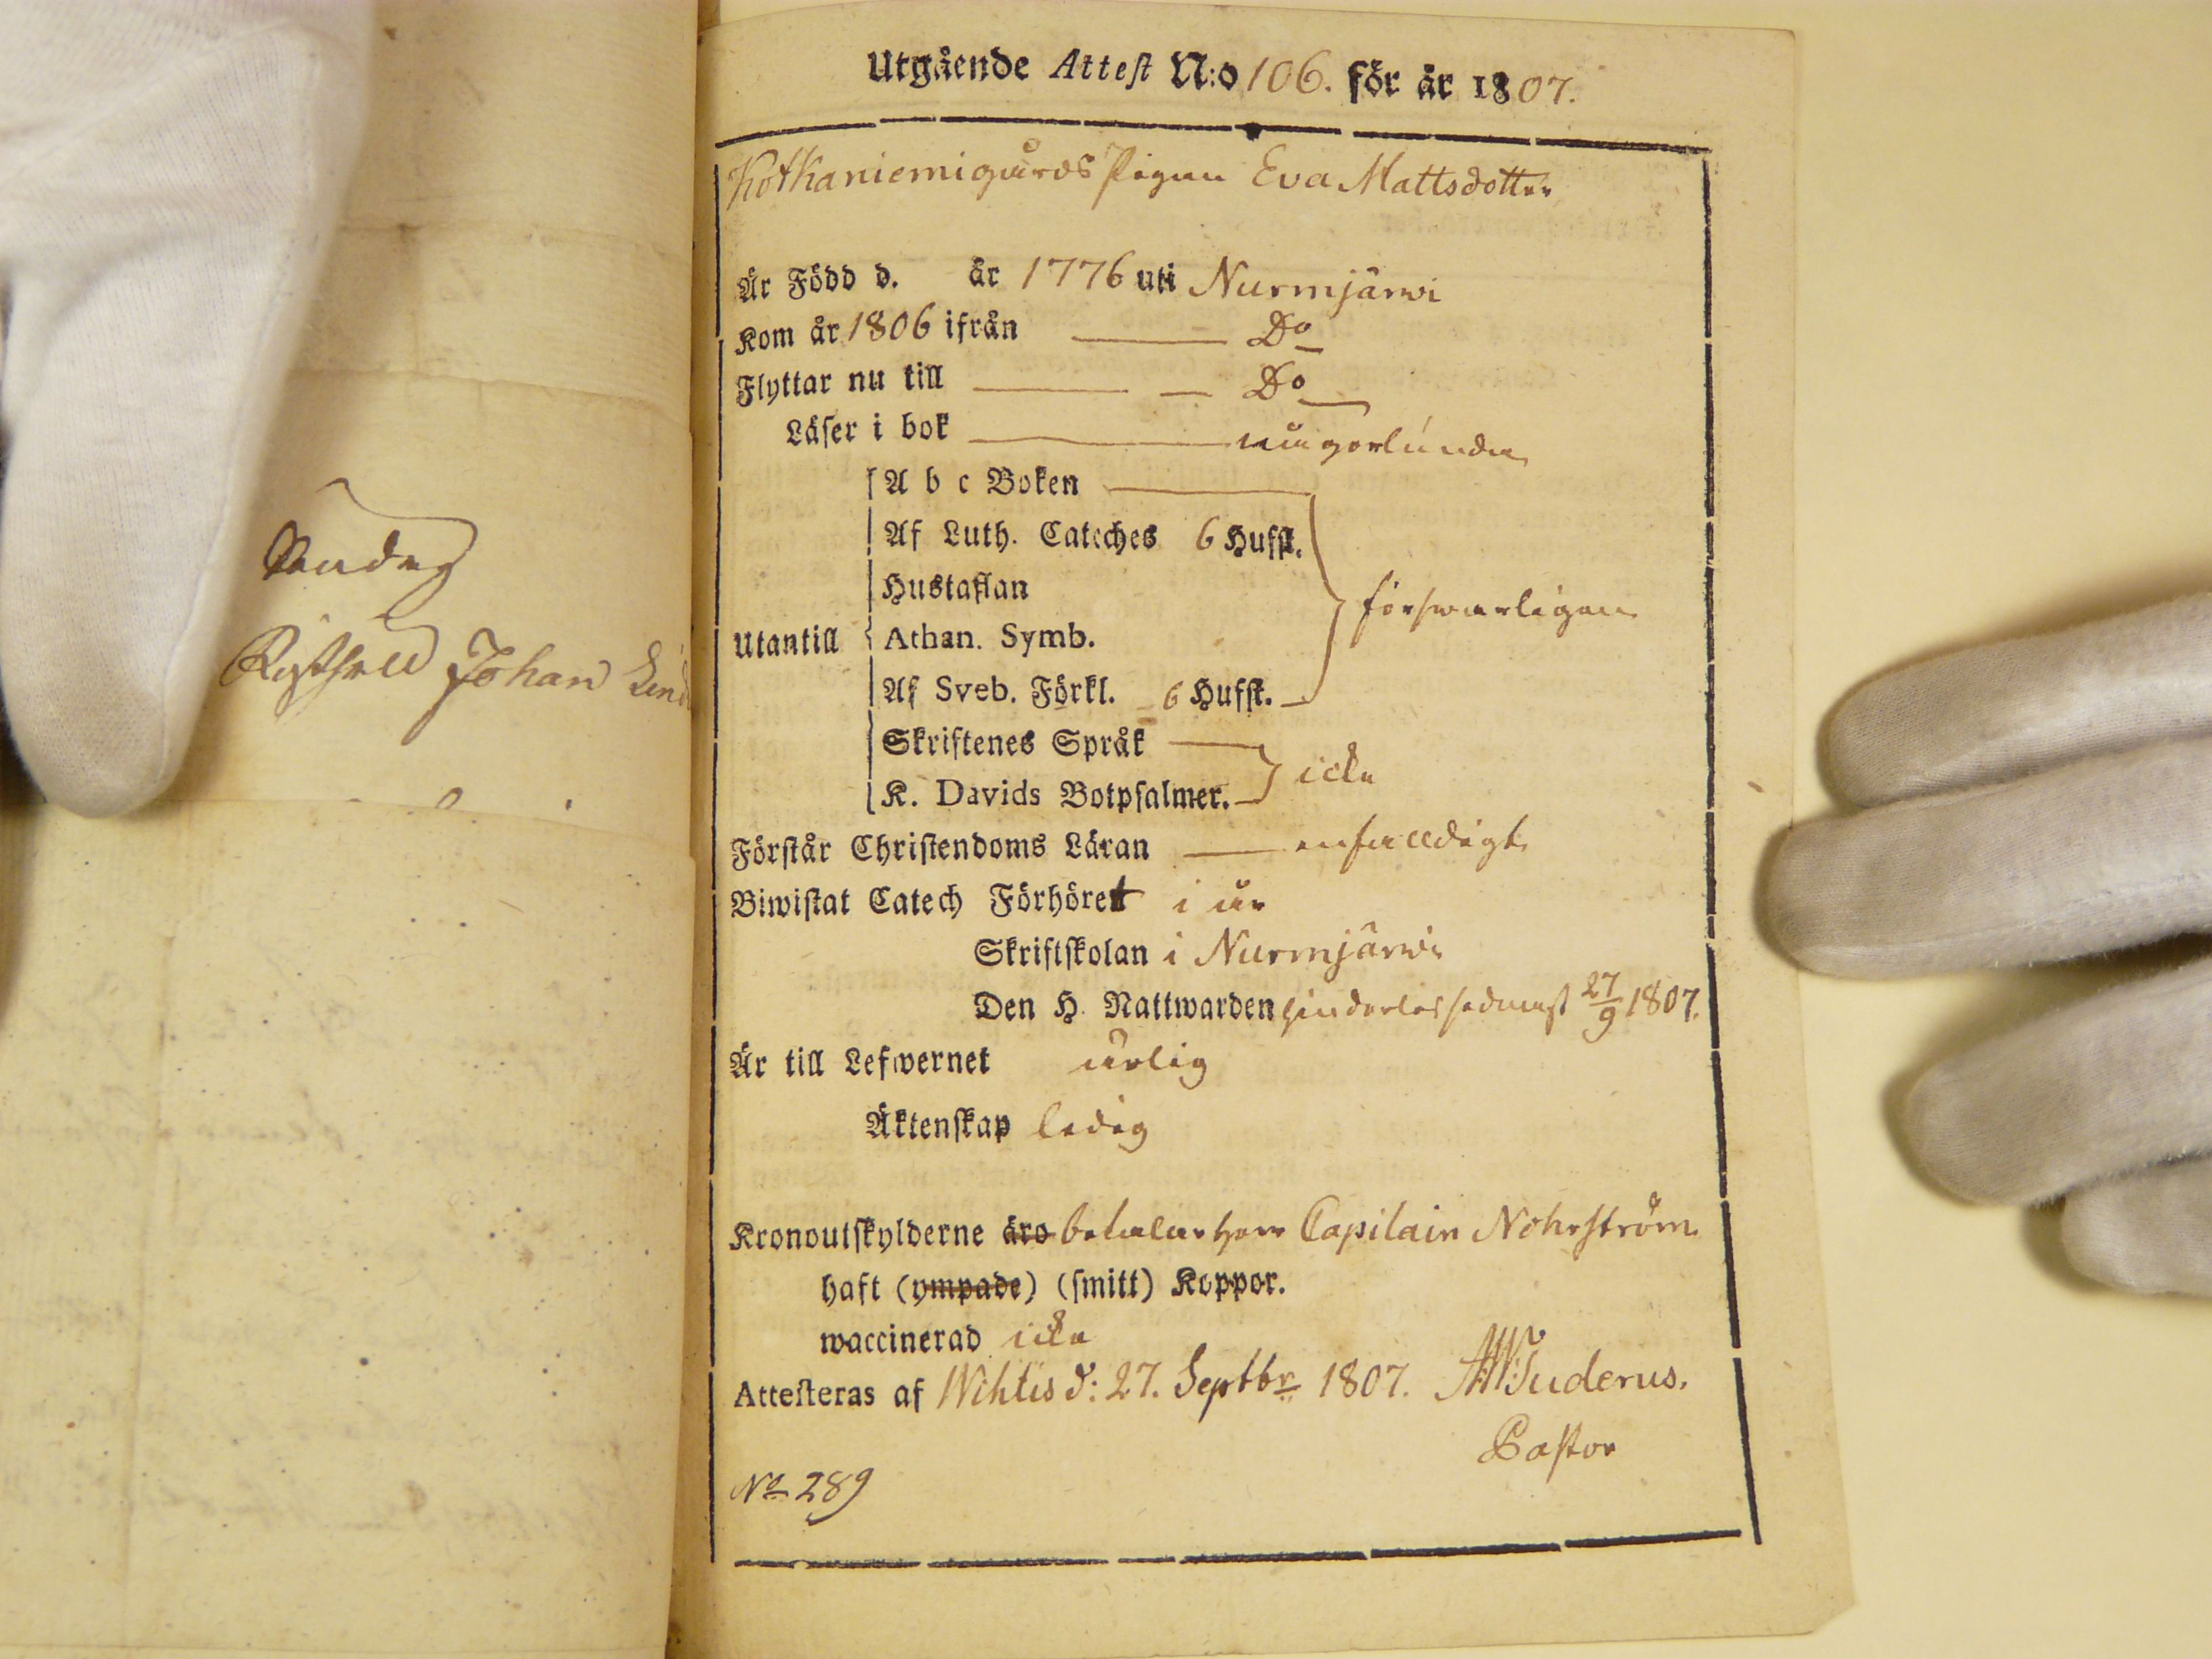 Utgående Attest N:o 106. för år 1807.
Kotkaniemigårds Pigan Eva Mattsdotter
Är Född d. år 1776 uti Nurmjärwi
Kom år 1806 ifrån Do
Flyttar nu till Do
Läser i bok någorlunda
A b c Boken
Af Luth. Cateches 6 Hufst.
Hustaflan
förswarligen
Utantill Athan. Symb.
Af Sveb. Förkl. 6 Hufst.
Skriftenes Språk
icke
K. Davids Botpsalmer.
Förstår Christendoms Läran enfalldigt
Biwistat Catech Förhöret i år
Skriftskolan i Nurmjärwi
Den H. Nattwarden hinderlös sednast 27/9 1807.
Är till Lefwernet ärlig
Äktenskap ledig
Kronoutskylderne äro betalar herr Capitain Nohrström
haft (ympade) (smitt) Koppor.
waccinerad icke
Attesteras af Wihtis d: 27. Septbr 1807. Suderus.
Pastor
No 289
Johan